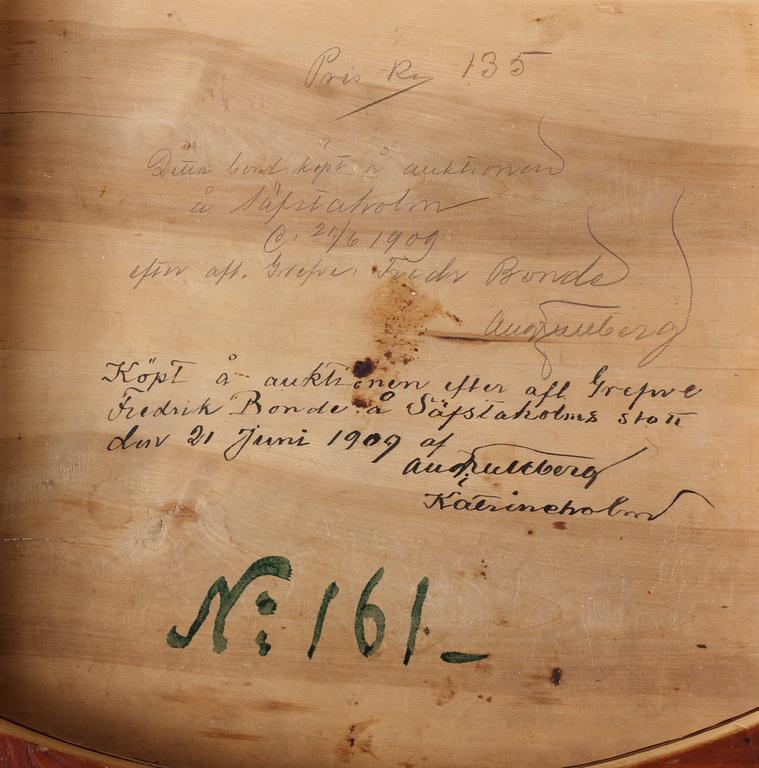 Pris Kr 135
Detta bord köpt å auktionen
å Säfstaholm
d. 21/6 1909
efter afl. Grefve Fredr Bonde
Aug
Köpt å auktionen efter afl Grefve
Fredrik Bonde å Säfstaholms slott
den 21 Juni 1909 af
Aug
Katrineholm
No: 161_